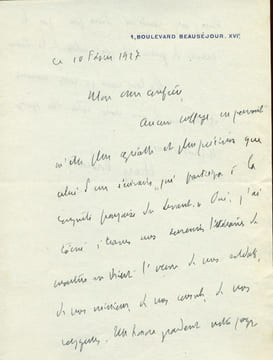 1, BOULEVARD BEAUSÉJOUR. XVIᵉ
ce 10 Février 1927
Mon cher confrère,
Aucun suffrage ne pouvait
m'être plus agréable et plus précieux que
celui d'un écrivain qui participa à la
enquête française du Levant. Oui, j'ai
tâché, à travers nos souvenirs littéraires de
montrer en Orient l'œuvre de nos soldats,
de nos missions, de nos consuls, de nos
religieux. Un homme pendant votre page